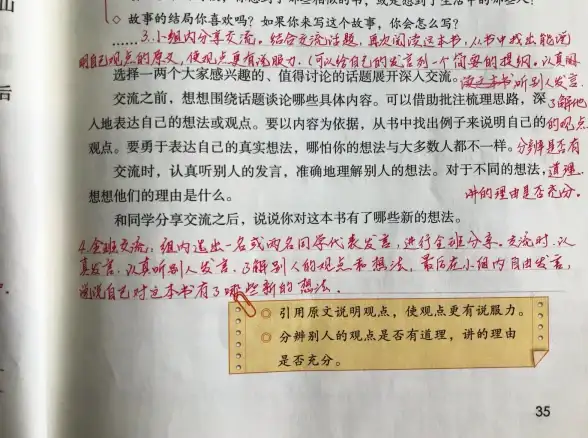 山
◇ 故事的结局你喜欢吗？如果你来写这个故事，你会怎么写？
……3.小组内分享交流。结合交流话题，再次阅读这本书，从书中找出能说
明自己观点的原文，使观点更有说服力。（可以给自己的发言列一个简要的提纲。）认真
选择一两个大家感兴趣的、值得讨论的话题展开深入交流。听别人发言.
后
交流之前，想想围绕话题谈论哪些具体内容。可以借助批注梳理思路，深了解他
人地表达自己的想法或观点。要以内容为依据，从书中找出例子来说明自己的的观点
观点。要勇于表达自己的真实想法，哪怕你的想法与大多数人都不一样。分辨是否有
交流时，认真听别人的发言，准确地理解别人的想法。对于不同的想法，道理.
想想他们的理由是什么。讲的理由是否充分。
和同学分享交流之后，说说你对这本书有了哪些新的想法。
4.全班交流。组内选出一名或两名同学代表发言，进行全班分享。交流时.认
真发言.认真听别人发言.了解别人的观点和想法，最后在小组内自由发言，
说说自己对这本书有了哪些新的想法.
引用原文说明观点，使观点更有说服力。
分辨别人的观点是否有道理，讲的理由
是否充分。
35